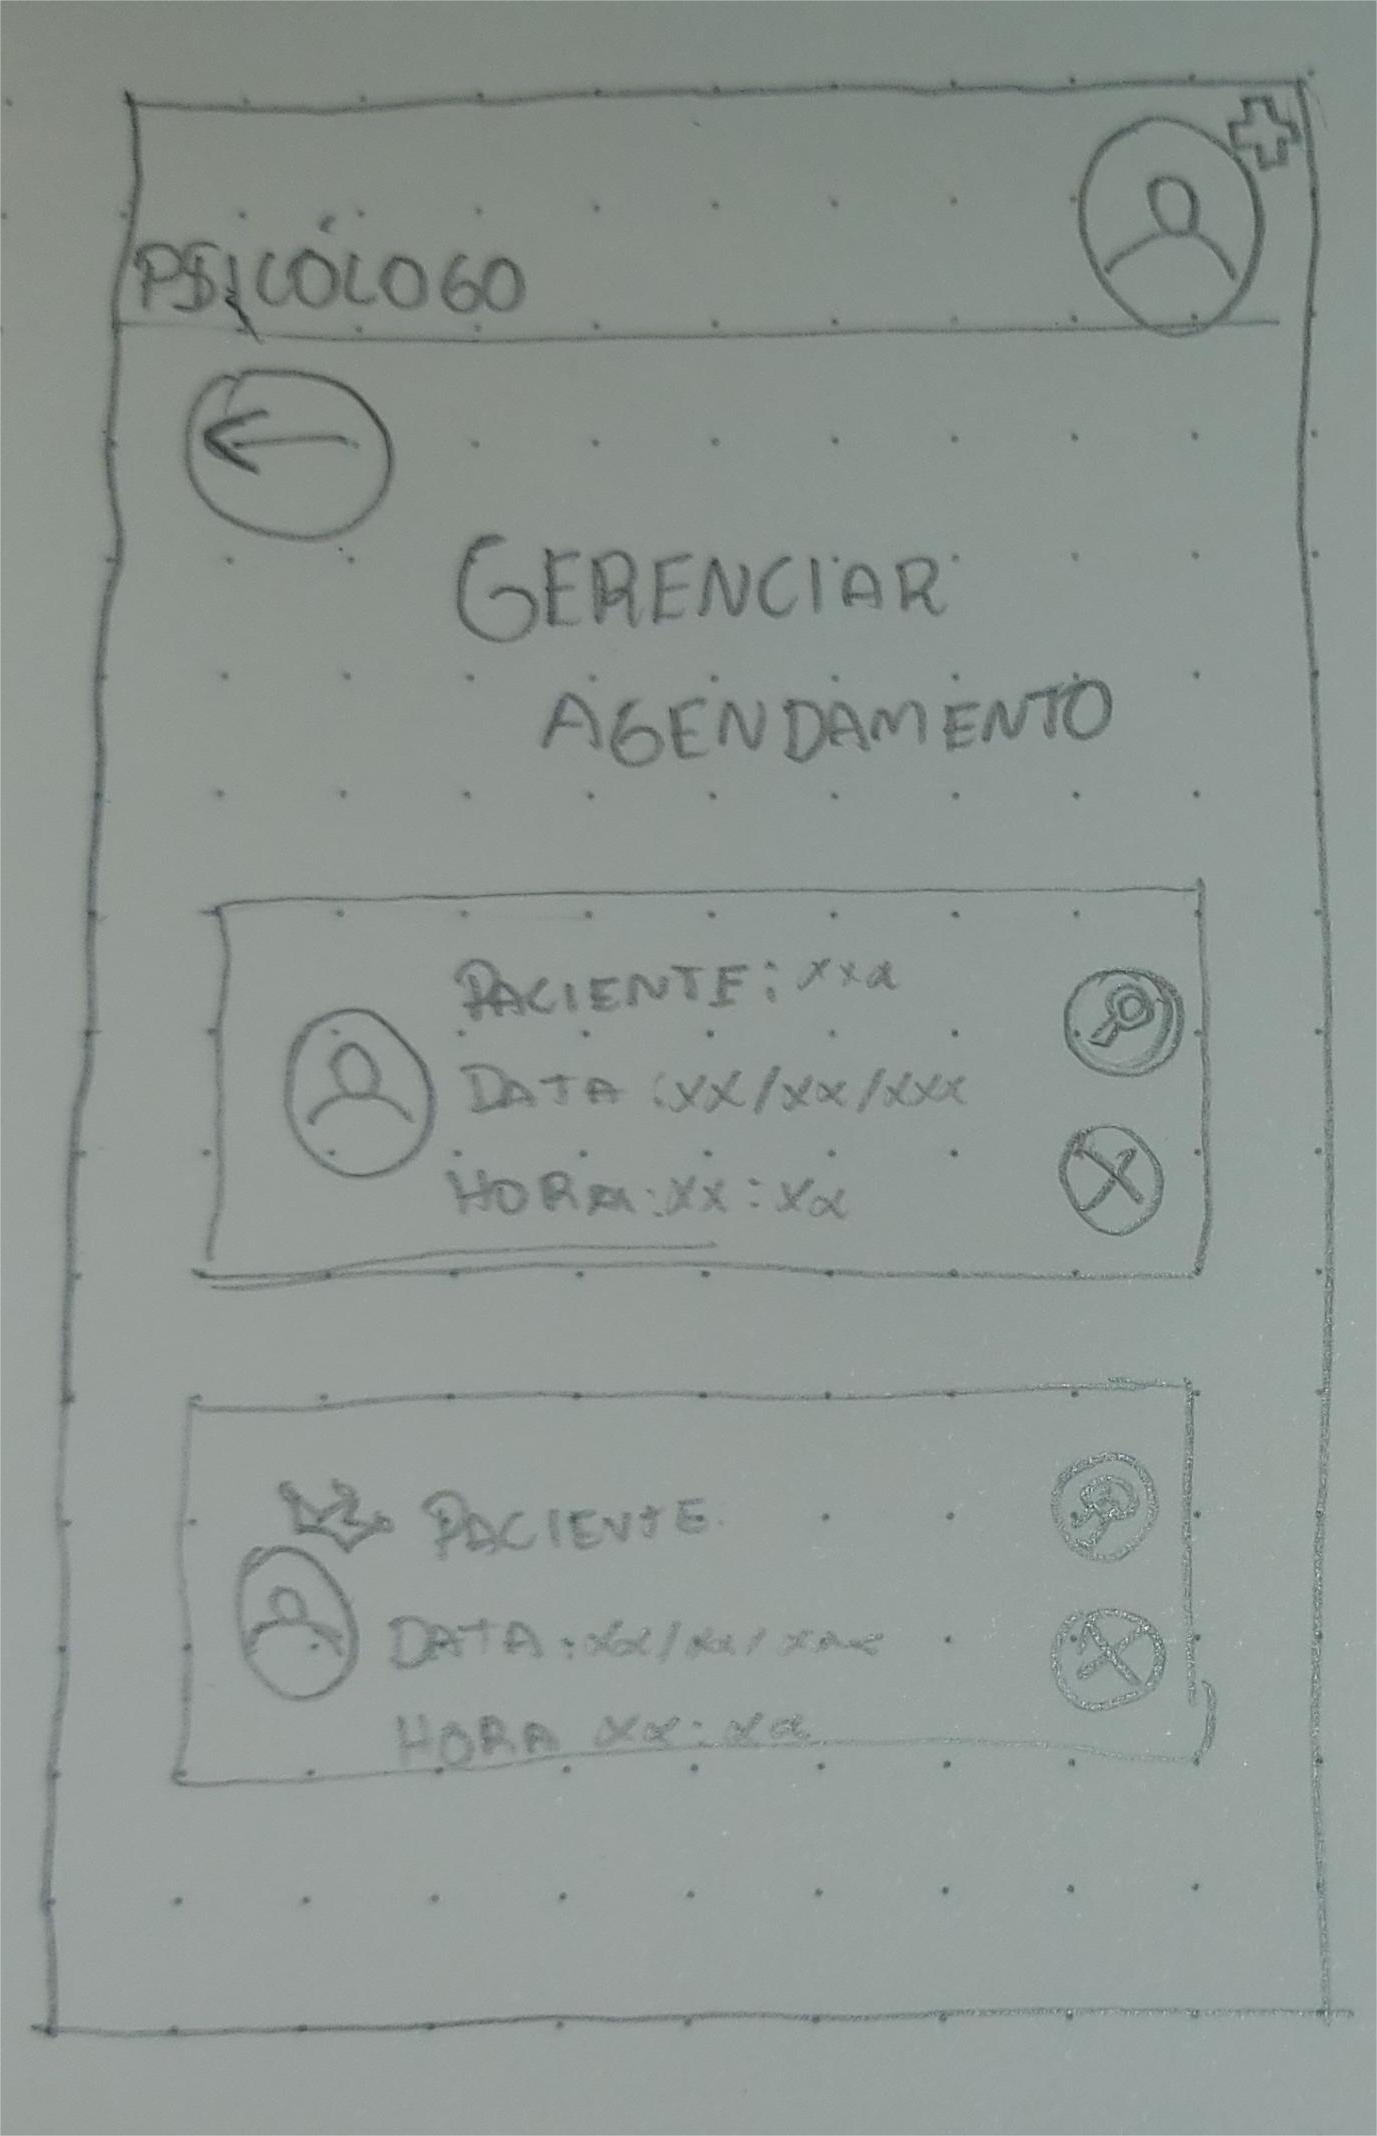 PSICÓLOGO
GERENCIAR
AGENDAMENTO
PACIENTE: xxx
DATA: xx/xx/xxx
HORA: xx:xx
PACIENTE
DATA: xx/xx/xxx
HORA xx:xx